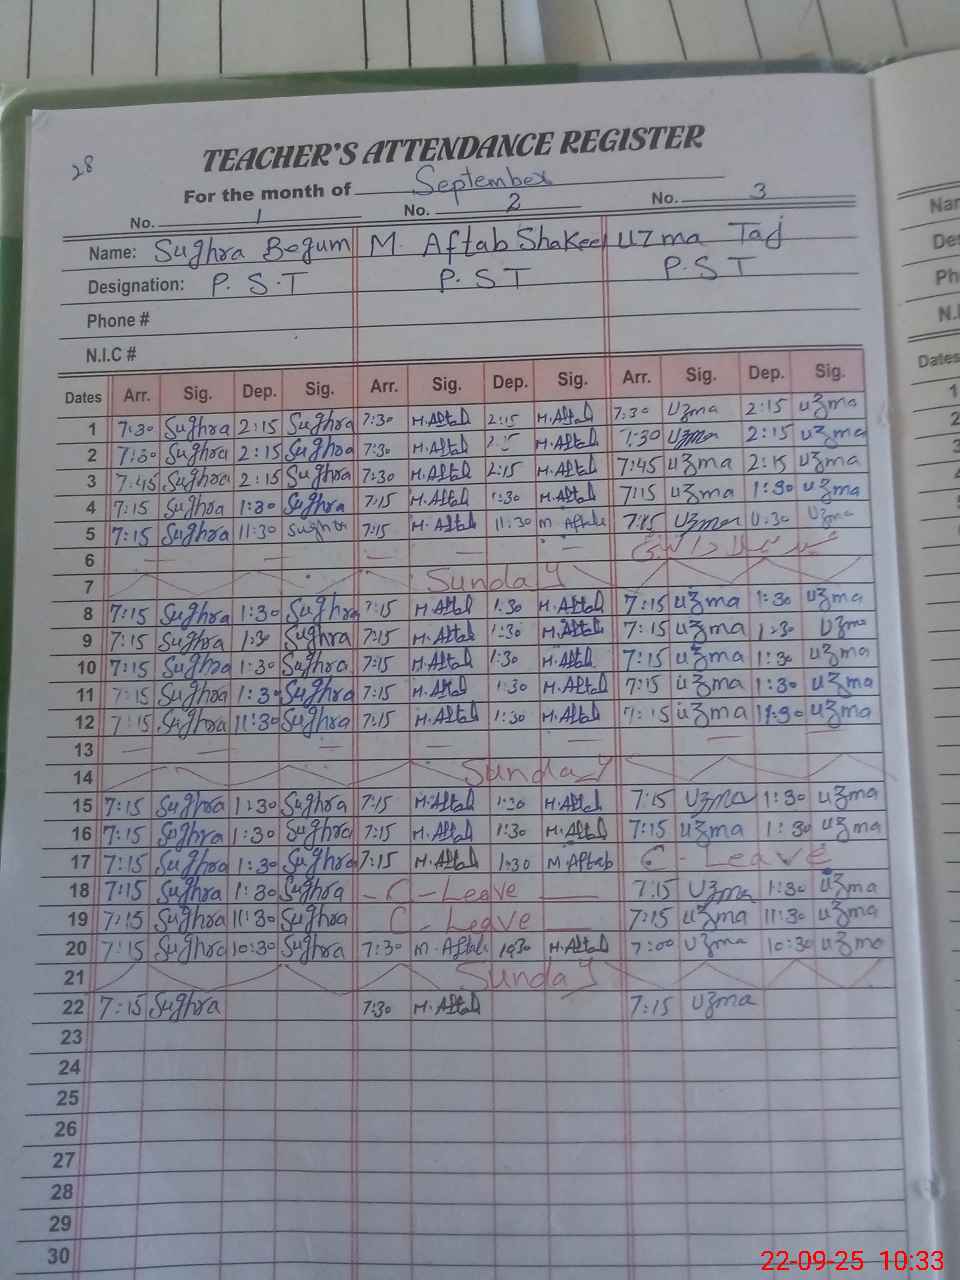 28
TEACHER'S ATTENDANCE REGISTER
For the month of September
No. 1 No. 2 No. 3
Name: Sughra Begum M. Aftab Shakeel Uzma Taj
Designation: P.S.T P.S.T P.S.T
Phone #
N.I.C #
Dates Arr. Sig. Dep. Sig. Arr. Sig. Dep. Sig. Arr. Sig. Dep. Sig.
1 7:30 Sughra 2:15 Sughra 7:30 M.Aftab 2:15 M.Aftab 7:30 Uzma 2:15 uzma
2 7:30 Sughra 2:15 Sughra 7:30 M.Aftab M.Aftab 7:30 Uzma 2:15 uzma
3 7:45 Sughra 2:15 Sughra 7:30 M.Aftab 2:15 M.Aftab 7:45 uzma 2:15 uzma
4 7:15 Sughra 1:30 Sughra 7:15 M.Aftab 1:30 M.Aftab 7:15 uzma 1:30 uzma
5 7:15 Sughra 11:30 Sughra 7:15 M.Aftab 11:30 M.Aftab 7:15 Uzma 11:30 Uzma
6 — — — — —
7 Sunday
8 7:15 Sughra 1:30 Sughra 7:15 M.Aftab 1:30 M.Aftab 7:15 uzma 1:30 uzma
9 7:15 Sughra 1:30 Sughra 7:15 M.Aftab 1:30 M.Aftab 7:15 uzma 1:30 Uzma
10 7:15 Sughra 1:30 Sughra 7:15 M.Aftab 1:30 M.Aftab 7:15 uzma 1:30 uzma
11 7:15 Sughra 1:30 Sughra 7:15 M.Aftab 1:30 M.Aftab 7:15 uzma 1:30 uzma
12 7:15 Sughra 11:30 Sughra 7:15 M.Aftab 1:30 M.Aftab 7:15 uzma 11:30 uzma
13 — — — — — — —
14 Sunday
15 7:15 Sughra 1:30 Sughra 7:15 M.Aftab 1:30 M.Aftab 7:15 Uzma 1:30 uzma
16 7:15 Sughra 1:30 Sughra 7:15 M.Aftab 1:30 M.Aftab 7:15 uzma 1:30 uzma
17 7:15 Sughra 1:30 Sughra 7:15 M.Aftab 1:30 M.Aftab C - Leave
18 7:15 Sughra 1:30 Sughra - C - Leave — 7:15 Uzma 1:30 uzma
19 7:15 Sughra 11:30 Sughra C - Leave — 7:15 uzma 11:30 uzma
20 7:15 Sughra 10:30 Sughra 7:30 M.Aftab 10:30 M.Aftab 7:00 uzma 10:30 uzma
21 Sunday
22 7:15 Sughra 7:30 M.Aftab 7:15 uzma
23
24
25
26
27
28
29
30
Nar
Des
Ph
N.I
Dates
1
2
22-09-25 10:33